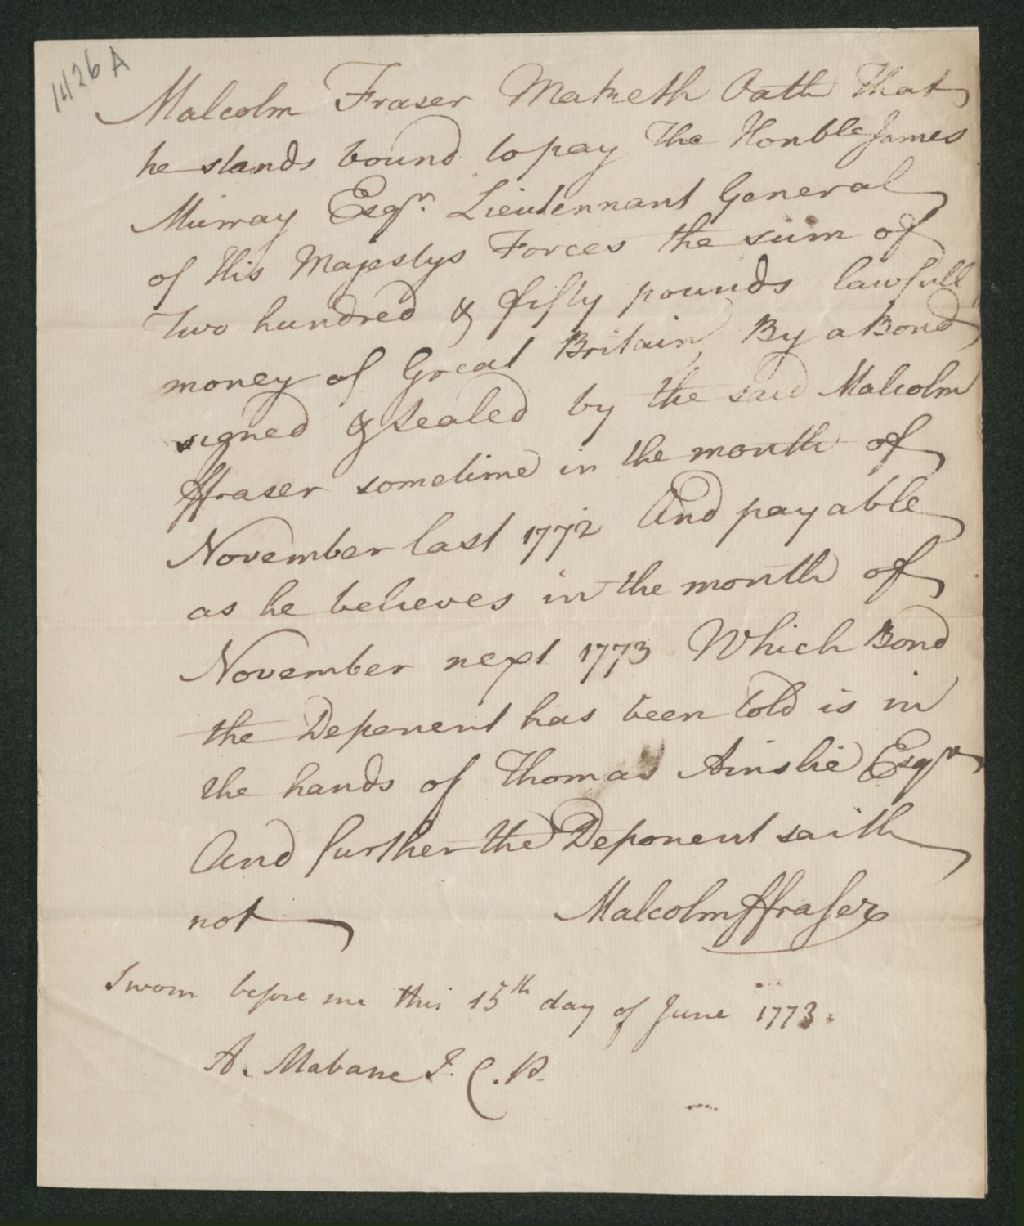 1426 A
Malcolm Fraser Maketh Oath That
he stands bound to pay The Honble James
Murray Esqr. Lieutennant General
of His Majestys Forces the sum of
Two hundred & fifty pounds lawfull
money of Great Britain, By a Bond
signed & sealed by the said Malcolm
ffraser sometime in the month of
November last 1772 And payable
as he believes in the month of
November next 1773 Which Bond
the Deponent has been told is in
the hands of Thomas Ainslie Esqr
And further the Deponent saith
not Malcolm ffraser
Sworn before me this 15th day of June 1773.
A. Mabane J. C. P.